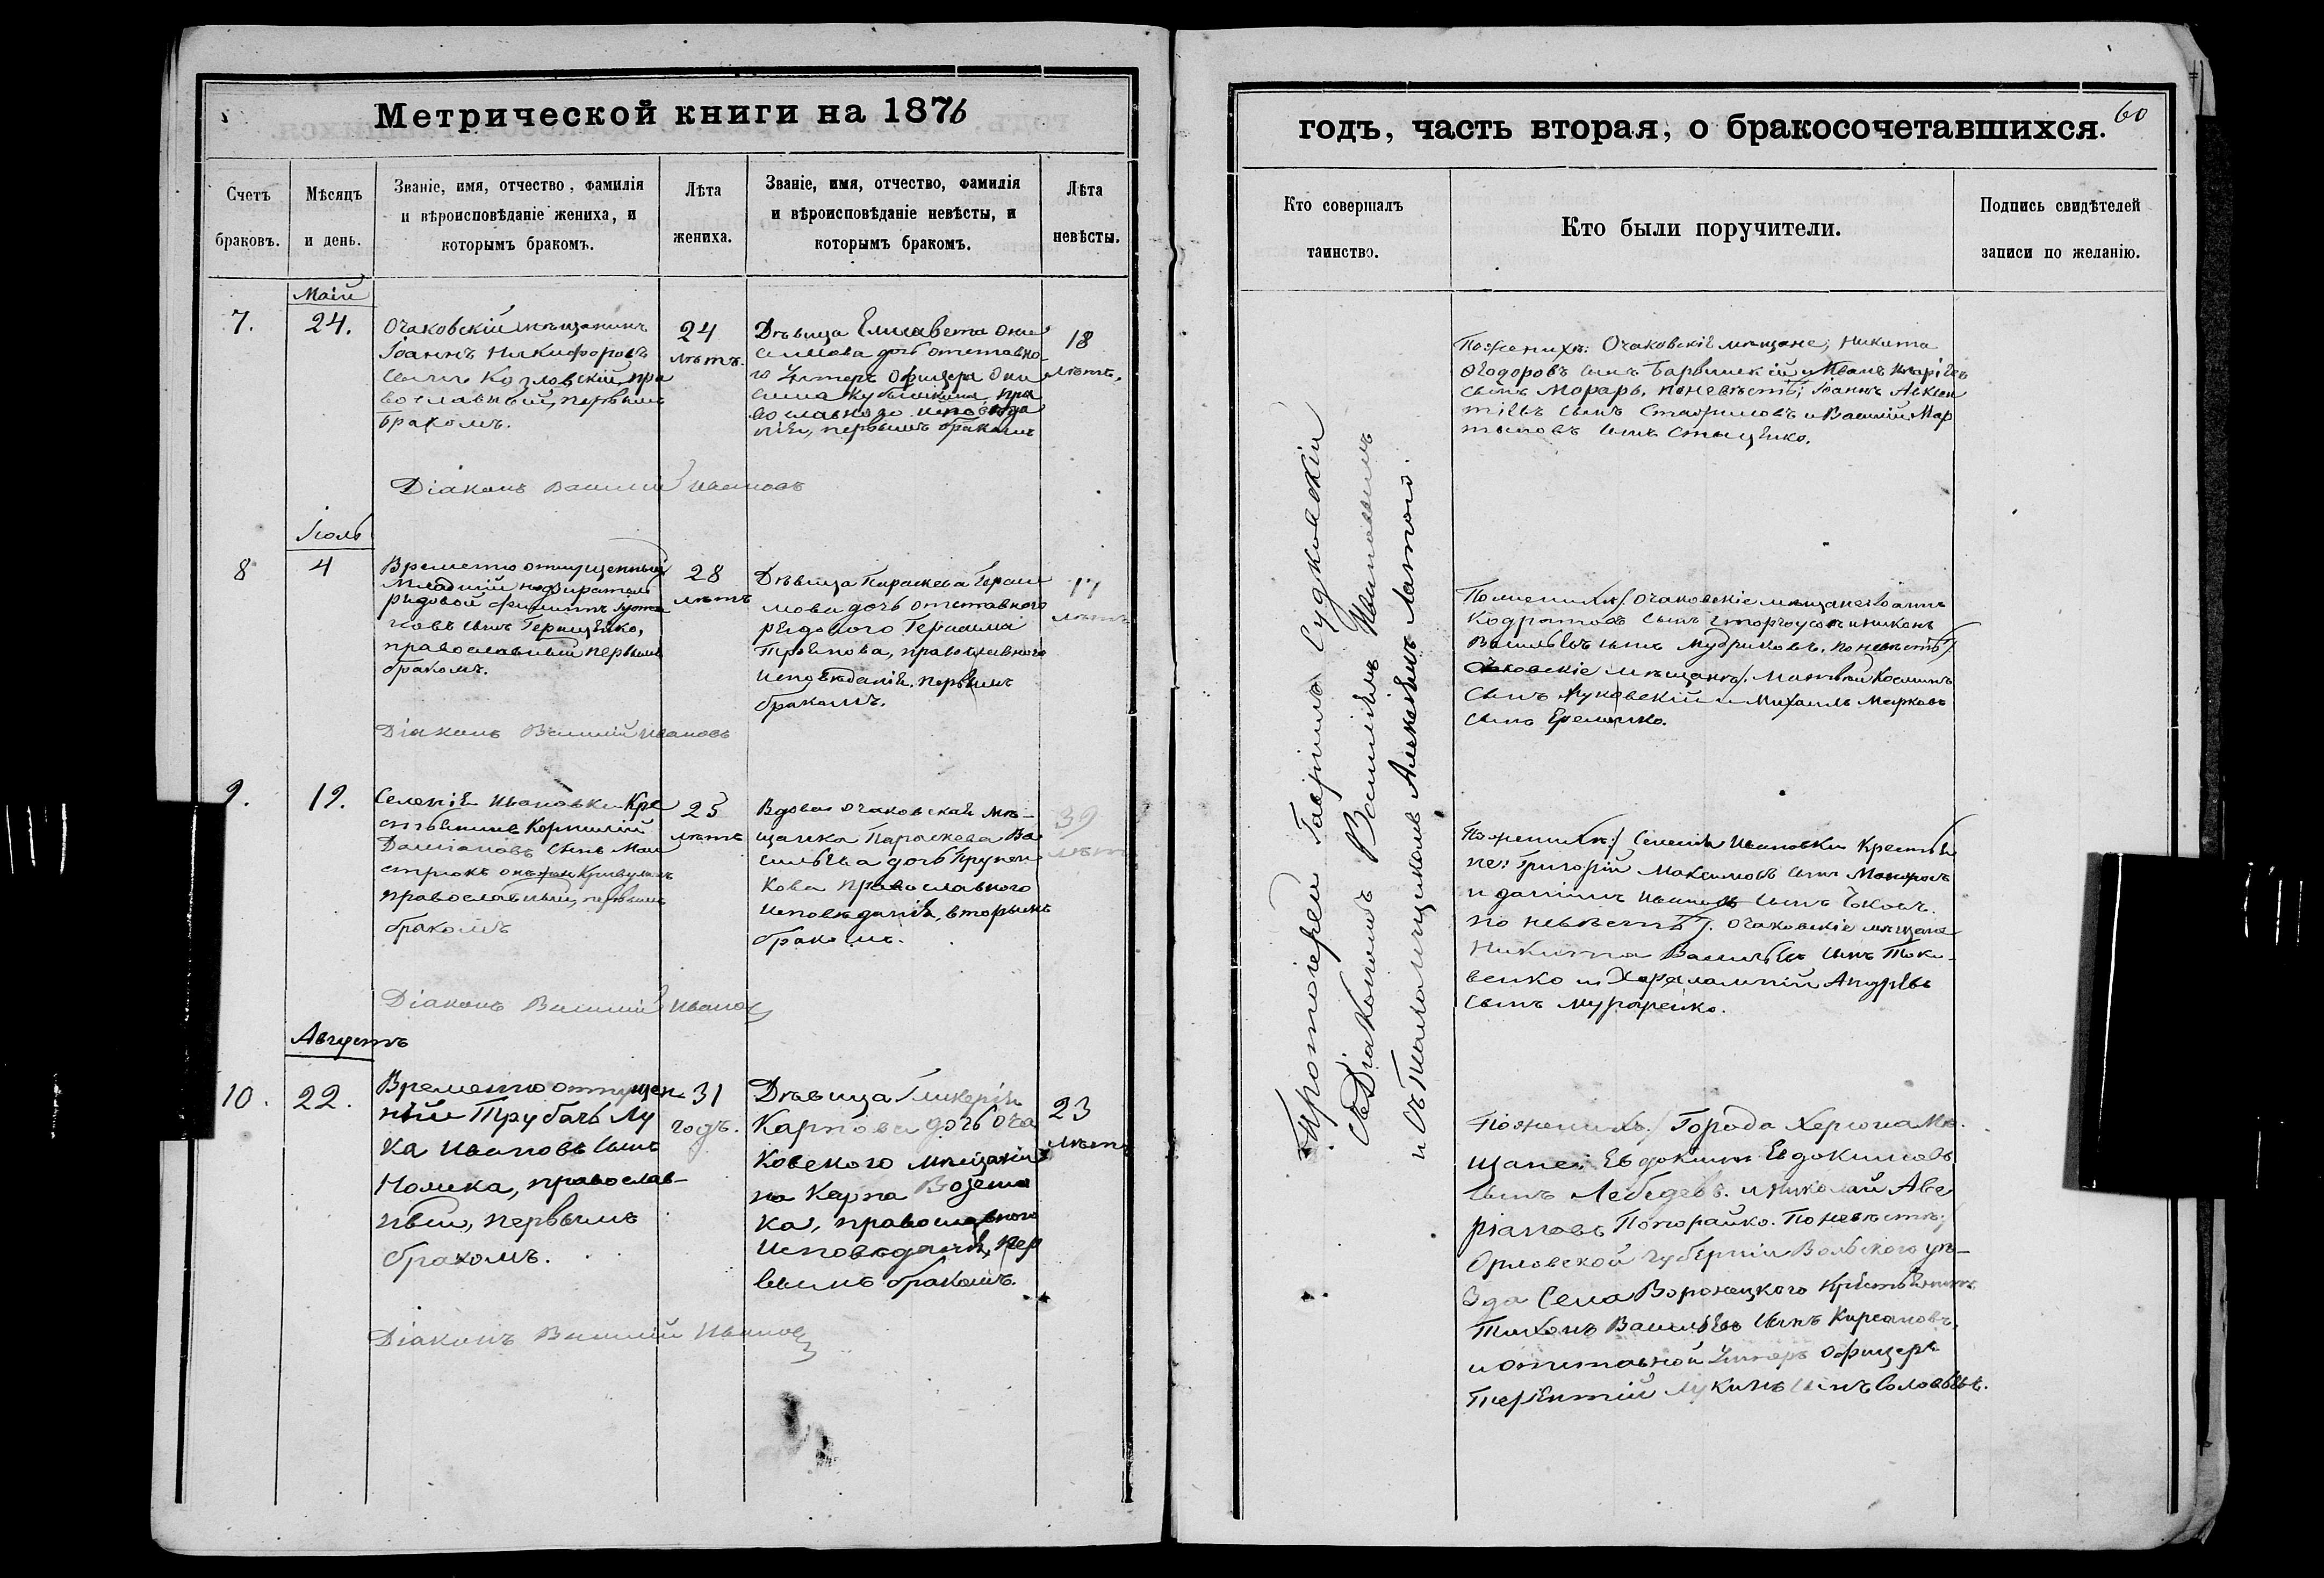 Метрической книги на 1876
Счетъ браковъ.
Мѣсяцъ и день.
Званіе, имя, отчество, фамилія
и вѣроисповѣданіе жениха, и
которымъ бракомъ.
Лѣта
жениха.
Званіе, имя, отчество, фамилія
и вѣроисповѣданіе невѣсты, и
которымъ бракомъ.
Лѣта
невѣсты.
Маій
7.
24.
Очаковскій мѣщанинъ
Іоаннъ Никифоровъ
сынъ Козловскій, пра
вославный, первымъ
бракомъ.
24
лѣтъ.
Дѣвица Елисавета Они
симова дочь отставно-
го Унтеръ Офицера Они
сима пра
вославнаго исповѣда
нія, первымъ бракомъ
18
лѣтъ.
Діаконъ Василій Ивановъ
Іюль
8
4
Временно отпущенный
Младшій
рядовой Филиппъ
сынъ Герищенко,
православный первымъ
бракомъ.
28
лѣтъ
Дѣвица Параскева Гераси
мова дочь отставного
рядового Герасима
православного
исповѣданія, первымъ
бракомъ.
17
лѣтъ
Діаконъ Василій Ивановъ
9.
19.
Селенія Ивановки Кре
стьянинъ Корнилій
Даміановъ сынъ
православный, первымъ
бракомъ
25
лѣтъ
Вдова очаковская мѣ-
щанка Параскева Ва
сильева дочь
кова православного
исповѣданія, вторымъ
бракомъ.
39
лѣтъ
Діаконъ Василій Ивановъ
Августъ
10.
22.
Временно отпущен
ній Трубачъ Лу
ка Ивановъ сынъ
Номика, православ-
ный, первымъ
бракомъ.
31
годъ.
Дѣвица Гликерія
Карпова дочь Оча
ковского мѣщани
на Карпа
ка, православного
исповѣданія, пер
вымъ бракомъ.
23
лѣтъ
Діаконъ Василій Ивановъ
60
годъ, часть вторая, о бракосочетавшихся.
Кто совершалъ
таинство.
Кто были поручители.
Подпись свидѣтелей
записи по желанію.
Протоіерей Гавріилъ Судковскій
съ Діакономъ Василіемъ Ивановымъ
и съ Псаломщикомъ Алексѣемъ
По женихѣ: Очаковскіе мѣщане, Никита
Ѳеодоровъ сынъ и Иванъ
сынъ Морарь, по невѣстѣ; Іоаннъ Авксен
тіевъ сынъ и Василій Мар
тыновъ сынъ Стыценко.
По женихѣ/ Очаковскіе мѣщане: Іоаннъ
Кодратовъ сынъ и Никонъ
Васильевъ сынъ Мудриковъ. по невѣстѣ/
Очаковскіе мѣщане/: Матвѣй Косминъ
сынъ и Михаилъ Марковъ
сынъ Еременко.
По женихѣ:/ Селенія Ивановки Крестья
не: Григорій Максимовъ сынъ
и Даніилъ Ивановъ сынъ
по невѣстѣ/. Очаковскіе мѣщане
Никита Васильевъ сынъ Токо-
венко и Харалампій Андрѣевъ
сынъ
По женихѣ:/ Города Херсона Мѣ-
щане: Евдокимъ Евдокимовъ
сынъ Лебедевъ. и Николай Аве
ріановъ Попорайко. По невѣстѣ:/
Орловской губерніи уѣ-
зда Села Воронецкого Крестьянинъ
Тихонъ Васильевъ сынъ Кирсановъ,
и отставной Унтеръ Офицеръ
Терентій Лукинъ сынъ Соловьевъ.